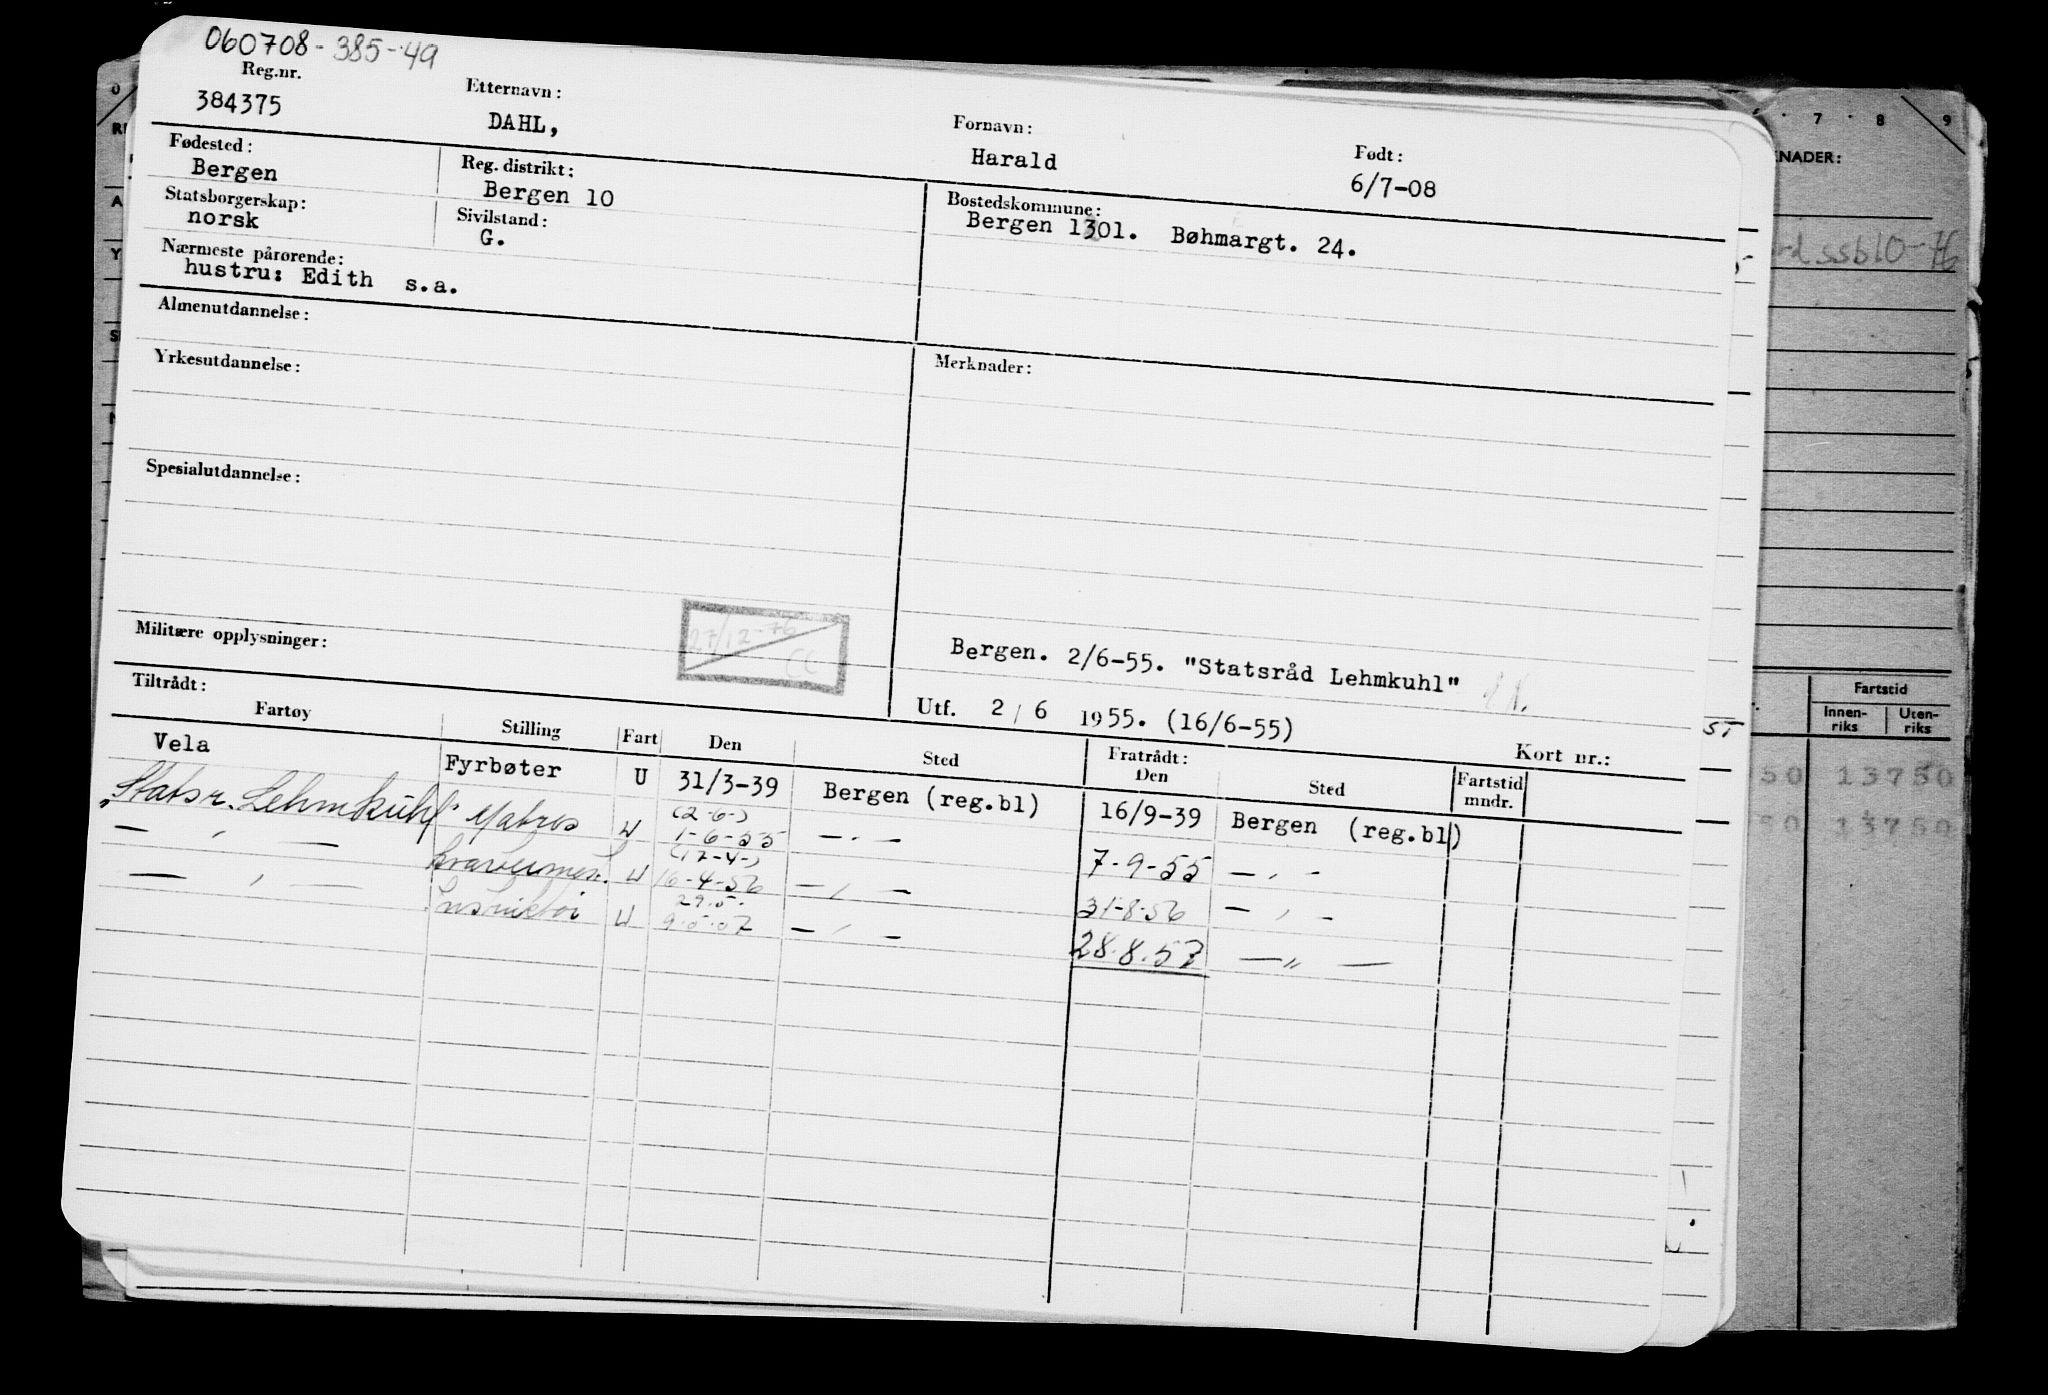 060708-385-49
Reg.nr. Etternavn: Fornavn: Født:
384375 DAHL, Harald 6/7-08
Fødested: Reg. distrikt: Bostedskommune:
Bergen Bergen 10 Bergen 1301. Bøhmargt. 24.
Statsborgerskap: Sivilstand:
norsk G.
Nærmeste pårørende:
hustru: Edith s.a.
Almenutdannelse:
Yrkesutdannelse: Merknader:
Spesialutdannelse:
27/12-76
CC
Militære opplysninger: Bergen. 2/6-55. "Statsråd Lehmkuhl"
Utf. 2/6 1955. (16/6-55)
Tiltrådt: Fratrådt: Kort nr.:
Fartøy Stilling Fart Den Sted Den Sted Fartstid mndr.
Vela Fyrbøter U 31/3-39 Bergen (reg.bl) 16/9-39 Bergen (reg.bl)
(2-6-)
"Statsr. Lehmkuhl" Matros U 1-6-55 — " — 7-9-55 — " —
(17-4-)
— " — U 16-4-56 — " — 31-8-56 — " —
29.5.
— " — U — " — 28.8.57 — " —
7 8 9
KNADER:
Fartstid
Innen-
riks
Uten-
riks
50 13750
50 13750